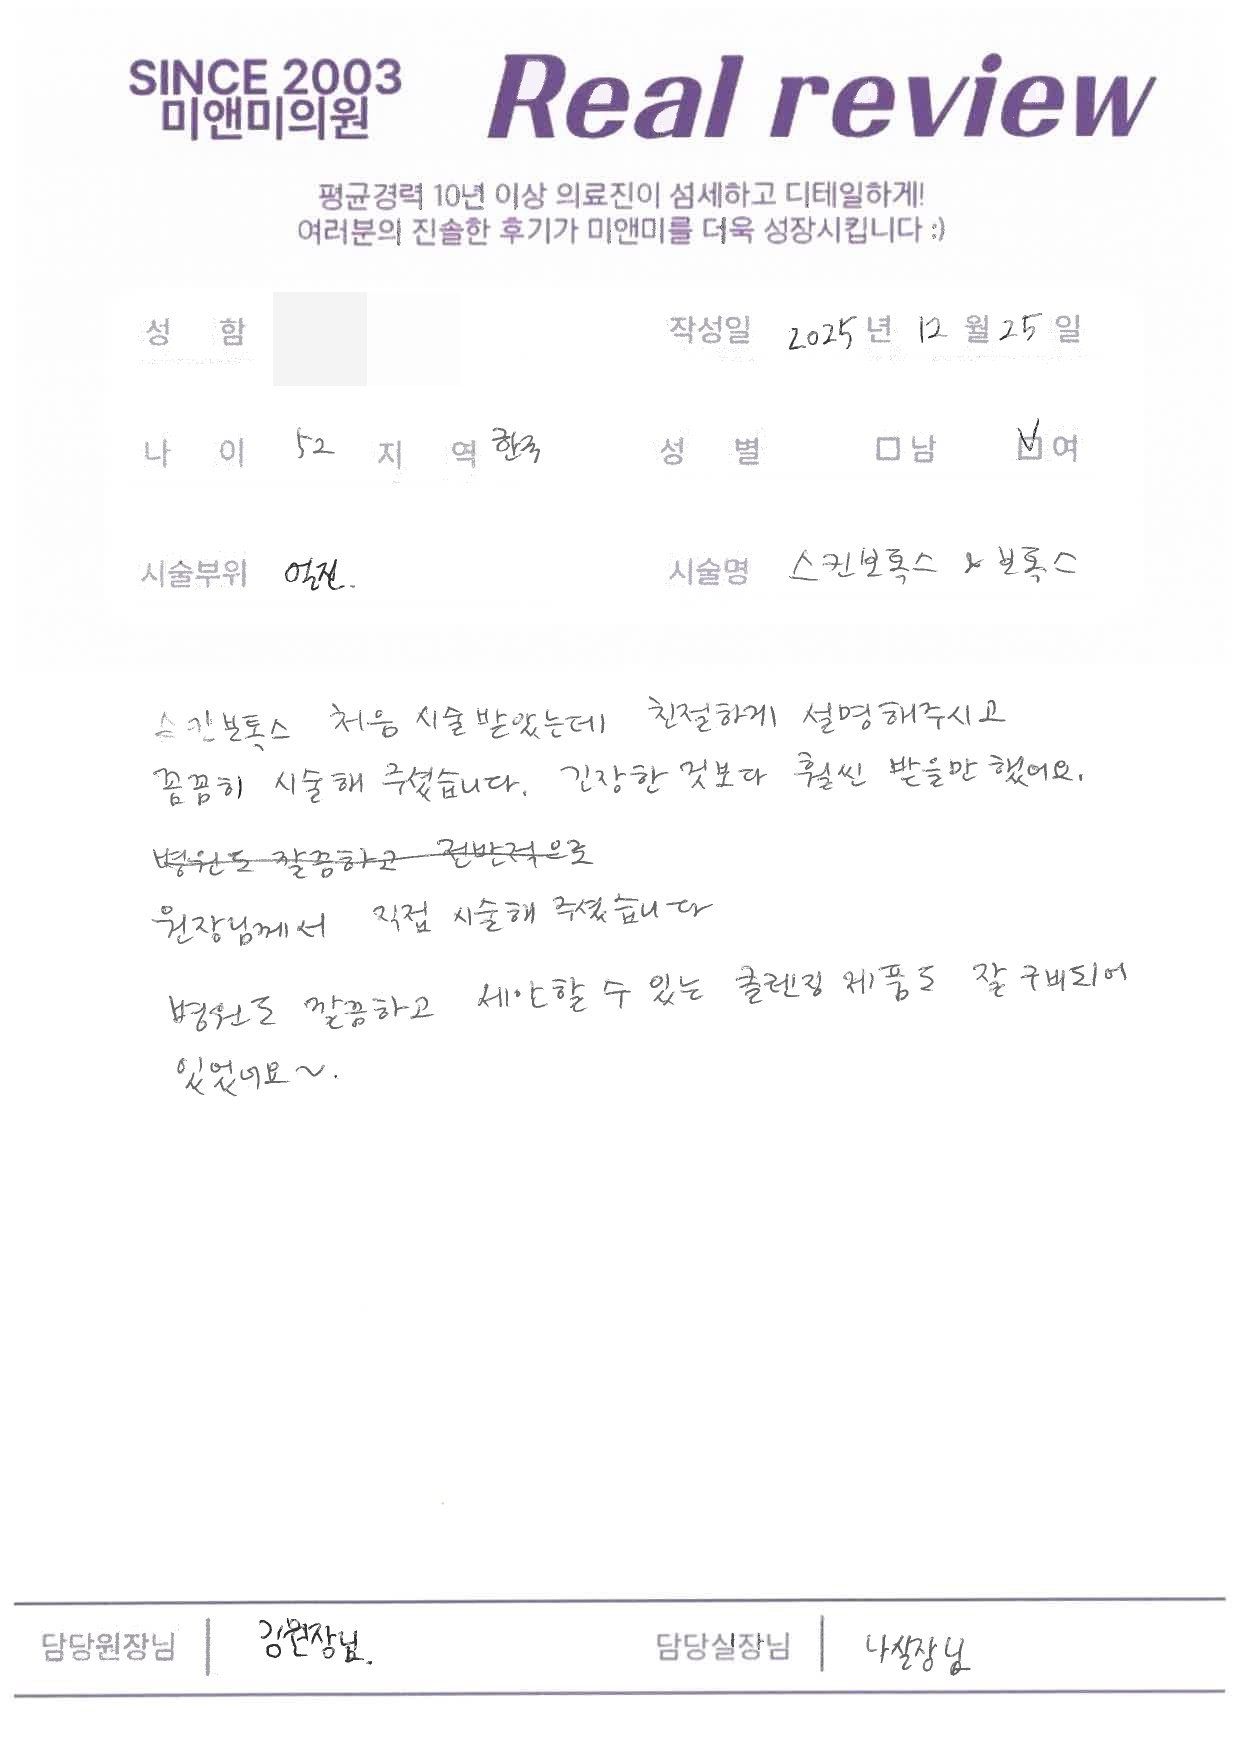 SINCE 2003
미앤미의원
Real review
평균경력 10년 이상 의료진이 섬세하고 디테일하게!
여러분의 진솔한 후기가 미앤미를 더욱 성장시킵니다 :)
성 함 작성일 2025년 12월 25일
나 이 52 지 역 한국 성 별 □남 ☑여
시술부위 얼굴. 시술명 스킨보톡스 & 보톡스
스킨보톡스 처음 시술 받았는데 친절하게 설명해주시고
꼼꼼히 시술해 주셨습니다. 긴장한 것보다 훨씬 받을만 했어요.
병원도 깔끔하고 전반적으로
원장님께서 직접 시술해 주셨습니다
병원도 깔끔하고 세안할 수 있는 클렌징 제품도 잘 구비되어
있었어요~.
담당원장님 김원장님. 담당실장님 나실장님